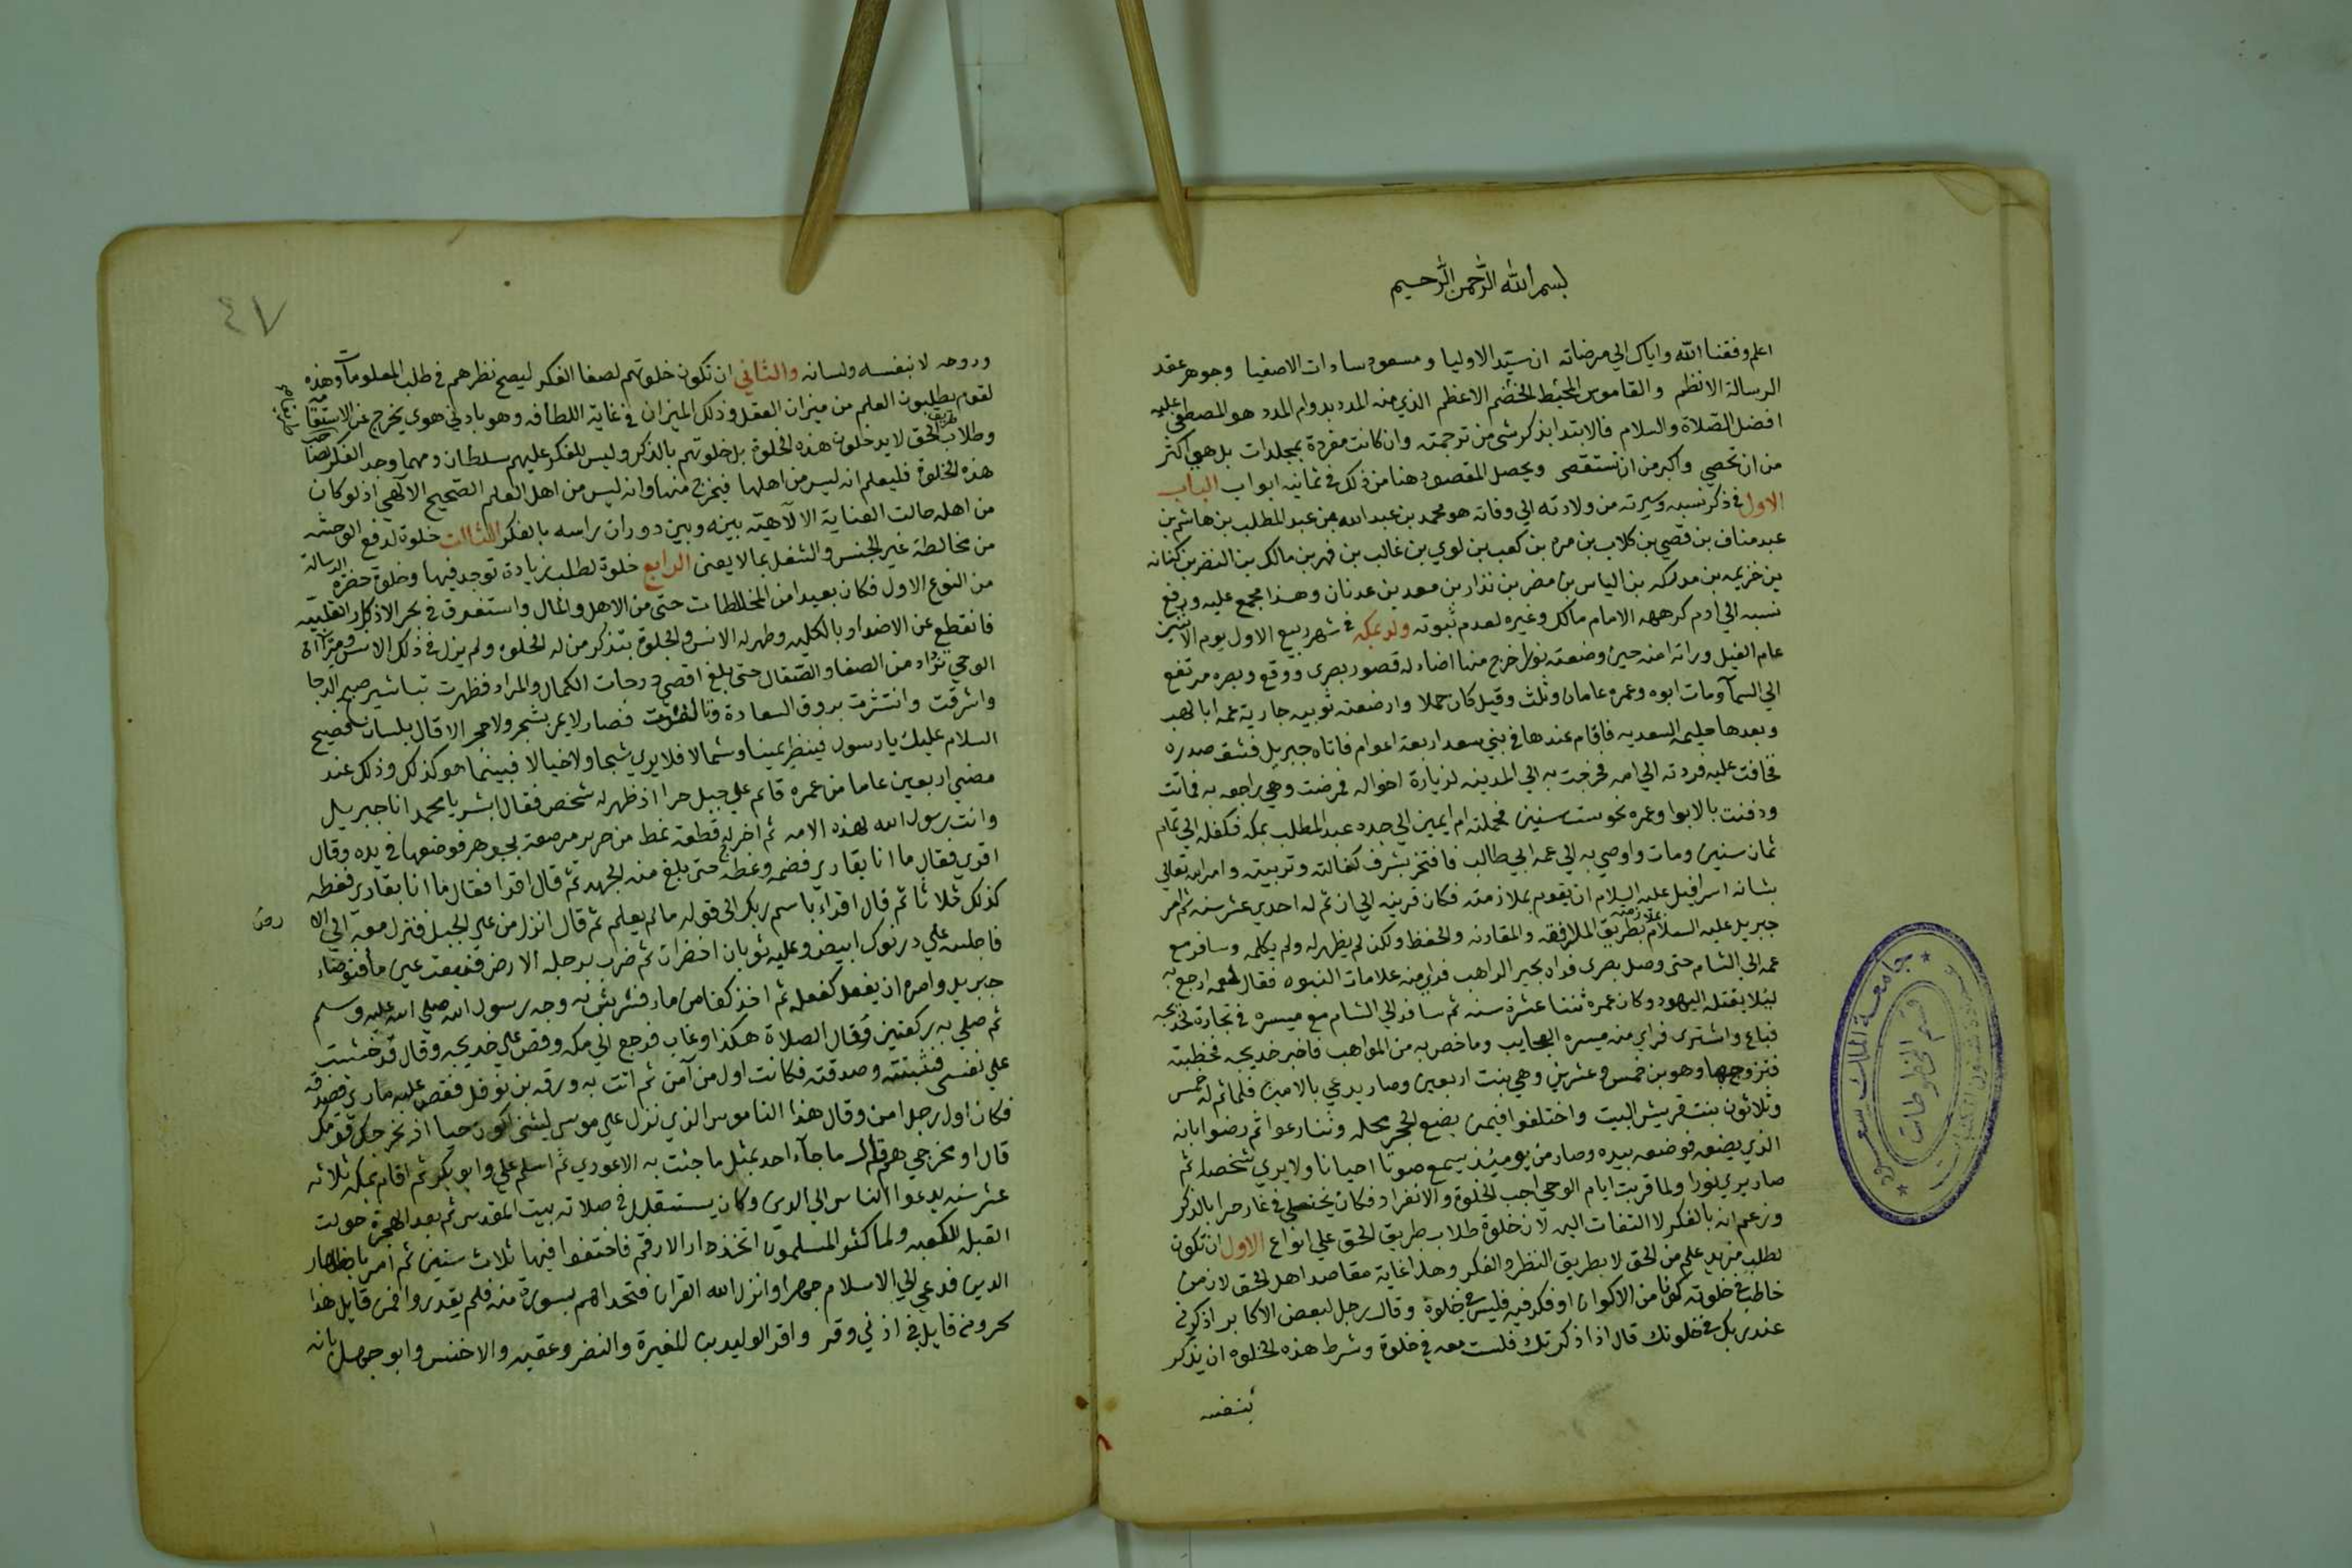 بسم الله الرحمن الرحيم
اعلم وفقنا الله واياك الي مرضاته ان سيد الاوليا ومسعود سادات الاصفيا وجوهر عقد
الرسالة الانظم والقاموس المحيط الخضم الاعظم الذي منه المدد بدوام المدد هو المصطفى عليه
افضل الصلاة والسلام فالابتدا بذكر شي من ترجمته وان كانت مفردة بمجلدات بل هي اكثر
من ان تحصي واكبر من ان تستقصى ويحصل المقصود هنا من ذلك في ثمانية ابواب الباب
الاول في ذكر نسبه وسيرته من ولادته الي وفاته هو محمد بن عبد الله بن عبد المطلب بن هاشم بن
عبد مناف بن قصي بن كلاب بن مره بن كعب بن لوي بن غالب بن فهر بن مالك بن النضر بن كنانه
بن خزيمه بن مدركه بن الياس بن مضر بن نذار بن معد بن عدنان وهذا مجمع عليه ورفع
نسبه الي ادم كرهه الامام مالك وغيره لعدم ثبوته ولد بمكه في شهر ربيع الاول يوم الاثنين
عام الفيل وراته امنه حين وضعته نورا خرج منها اضاء له قصور بصرى ووقع وبصره مرتفع
الي السمآ ومات ابوه وعمره عامان وثلث وقيل كان حملا وارضعته ثويبه جارية عمه ابا لهب
وبعدها حليمه السعديه فاقام عندها في بني سعد اربعة اعوام فاتاه جبريل فشق صدره
فخافت عليه فردته الي امه فخرجت به الي المدينه لزيارة اخواله فمرضت وهي راجعه به فماتت
ودفنت بالابوا وعمره نحو ست سنين فحملته ام ايمن الي جده عبد المطلب بمكه فكفله الي تمام
ثمان سنين ومات واوصي به الي عمه ابي طالب فافتخر بشرف كفالته وتربيته وامر الله تعالي
بشانه اسرافيل عليه السلام ان يقوم بملازمته فكان قرينه الي ان تم له احدي عشر سنه ثم امر
جبريل عليه السلام بملازمته بطريق المرافقه والمقارنه والحفظ ولكن لم يظهر له ولم يكلمه وسافر مع
عمه الي الشام حتى وصل بصرى فراه بحير الراهب فراي منه علامات النبوه فقال لعمه ارجع به
ليلا يقتله اليهود وكان عمره ثنتا عشرة سنه ثم سافر الي الشام مع ميسره في تجارة خديجه
فباع واشترى فراي منه ميسره العجايب وما خص به من المواهب فاخبر خديجه فخطبته
فتزوجها وهو بن خمس وعشرين وهي بنت اربعين وصار يدعي بالامين فلما تم له خمس
وثلاثون بنت قريش البيت واختلفوا فيمن يضع الحجر محله وتنازعوا ثم رضوا بانه
الذي يضعه فوضعه بيده وصار من يوميئذ يسمع صوتا احيانا ولا يري شخصا ثم
صار يري نورا ولما قربت ايام الوحي احب الخلوة والانفراد فكان يختلي في غار حرا بالذكر
وزعم انه بالفكر لا التفات اليه لان خلوة طلاب طريق الحق علي انواع الاول ان تكون
لطلب مزيد علم من الحق لا بطريق النظر والفكر وهذا غاية مقاصد اهل الحق لان من
خاطب في خلوته كونا من الاكوان او فكر فيه فليس في خلوة وقال رجل لبعض الاكابر اذكرني
عند ربك في خلوتك قال اذا ذكرتك فلست معه في خلوة وشرط هذه الخلوه ان يذكر
بنفسه
جامعة الملك سعود
قسم المخطوطات
٤٧
وروحه لا بنفسه ولسانه والثاني ان تكون خلوتهم لصفا الفكر ليصح نظرهم في طلب المعلومات وهذه
لقوم يطلبون العلم من ميزان العقل وذلك الميزان في غاية اللطافه وهو بادني هوى يخرج عن الاستقامة
وطلاب طريق الحق لا يدخلون هذه الخلوة بل خلوتهم بالذكر وليس للفكر عليهم سلطان ومهما وجد الفكر صاحب
هذه الخلوة فليعلم انه ليس من اهلها فيخرج منها وانه ليس من اهل العلم الصحيح الآلهي اذ لو كان
من اهله حالت العناية الالآهية بينه وبين دوران راسه بالفكر الثالث خلوة لدفع الوحشه
من مخالطة غير الجنس والشغل بما لا يعنى الرابع خلوة لطلب زيادة توجد فيها وخلوة حضرة الرسالة
من النوع الاول فكان بعيدا من المخالطات حتى من الاهل والمال واستغرق في بحر الاذكار القلبيه
فانقطع عن الاضداد بالكليه وظهر له الانس والجلوة بتذكر من له الخلوه ولم يزل في ذلك الانس ومرآة
الوحي تزداد من الصفا والصقال حتى بلغ اقصي درجات الكمال والمراد فظهرت تباشير صبح الدجا
واشرقت وانتشرت بروق السعادة وتالقت فصار لا يمر بشجر ولا حجر الا قال بلسان فصيح
السلام عليك يا رسول فينظر يمينا وشمالا فلا يري شبحا ولا خيالا فبينما هو كذلك وذلك عند
مضي اربعين عاما من عمره قايم علي جبل حرا اذ ظهر له شخص فقال ابشر يا محمد انا جبريل
وانت رسول الله لهذه الامه ثم اخرج له قطعة نمط من حرير مرصعة بجوهر فوضعها في يده وقال
اقري فقال ما انا بقاري فضمه وغطه حتى بلغ منه الجهد ثم قال اقرا فقال ما انا بقاري فغطه
كذلك ثلاثا ثم قال اقراء باسم ربك الى قوله ما لم يعلم ثم قال انزل من علي الجبل فنزل معه الي الارض
فاجلسه علي درنوك ابيض وعليه ثوبان اخضران ثم ضرب برجله الارض فنبعت عين مآ فتوضاء
جبريل وامره ان يفعل كفعله ثم اخذ كفا من ماء فرش به وجه رسول الله صلي الله عليه وسلم
ثم صلي به ركعتين وقال الصلاة هكذا وغاب فرجع الي مكه وقص علي خديجه وقال قد خشيت
علي نفسي فثبتته وصدقته فكانت اول من آمن ثم اتت به ورقه بن نوفل فقص عليه ما راي فصدقه
فكان اول رجل امن وقال هذا الناموس الذي نزل علي موسي ليتني اكون حيا اذ يخرجك قومك
قال او مخرجي هم قال ما جاء احد بمثل ما جئت به الا عودي ثم اسلم علي وابو بكر ثم اقام بمكه ثلاثه
عشر سنه يدعوا الناس الي الدين وكان يستقبل في صلاته بيت المقدس ثم بعد الهجرة حولت
القبله للكعبه ولما كثر المسلمون اتخذ دار الارقم فاختفوا فيها ثلاث سنين ثم امر باظهار
الدين فدعي الي الاسلام جهرا وانزل الله القران فتحداهم بسورة منه فلم يقدروا فمن قايل هذا
سحر ومن قايل في اذني وقر واقر الوليد بن المغيرة والنضر وعقبه والاخنس وابو جهل بانه